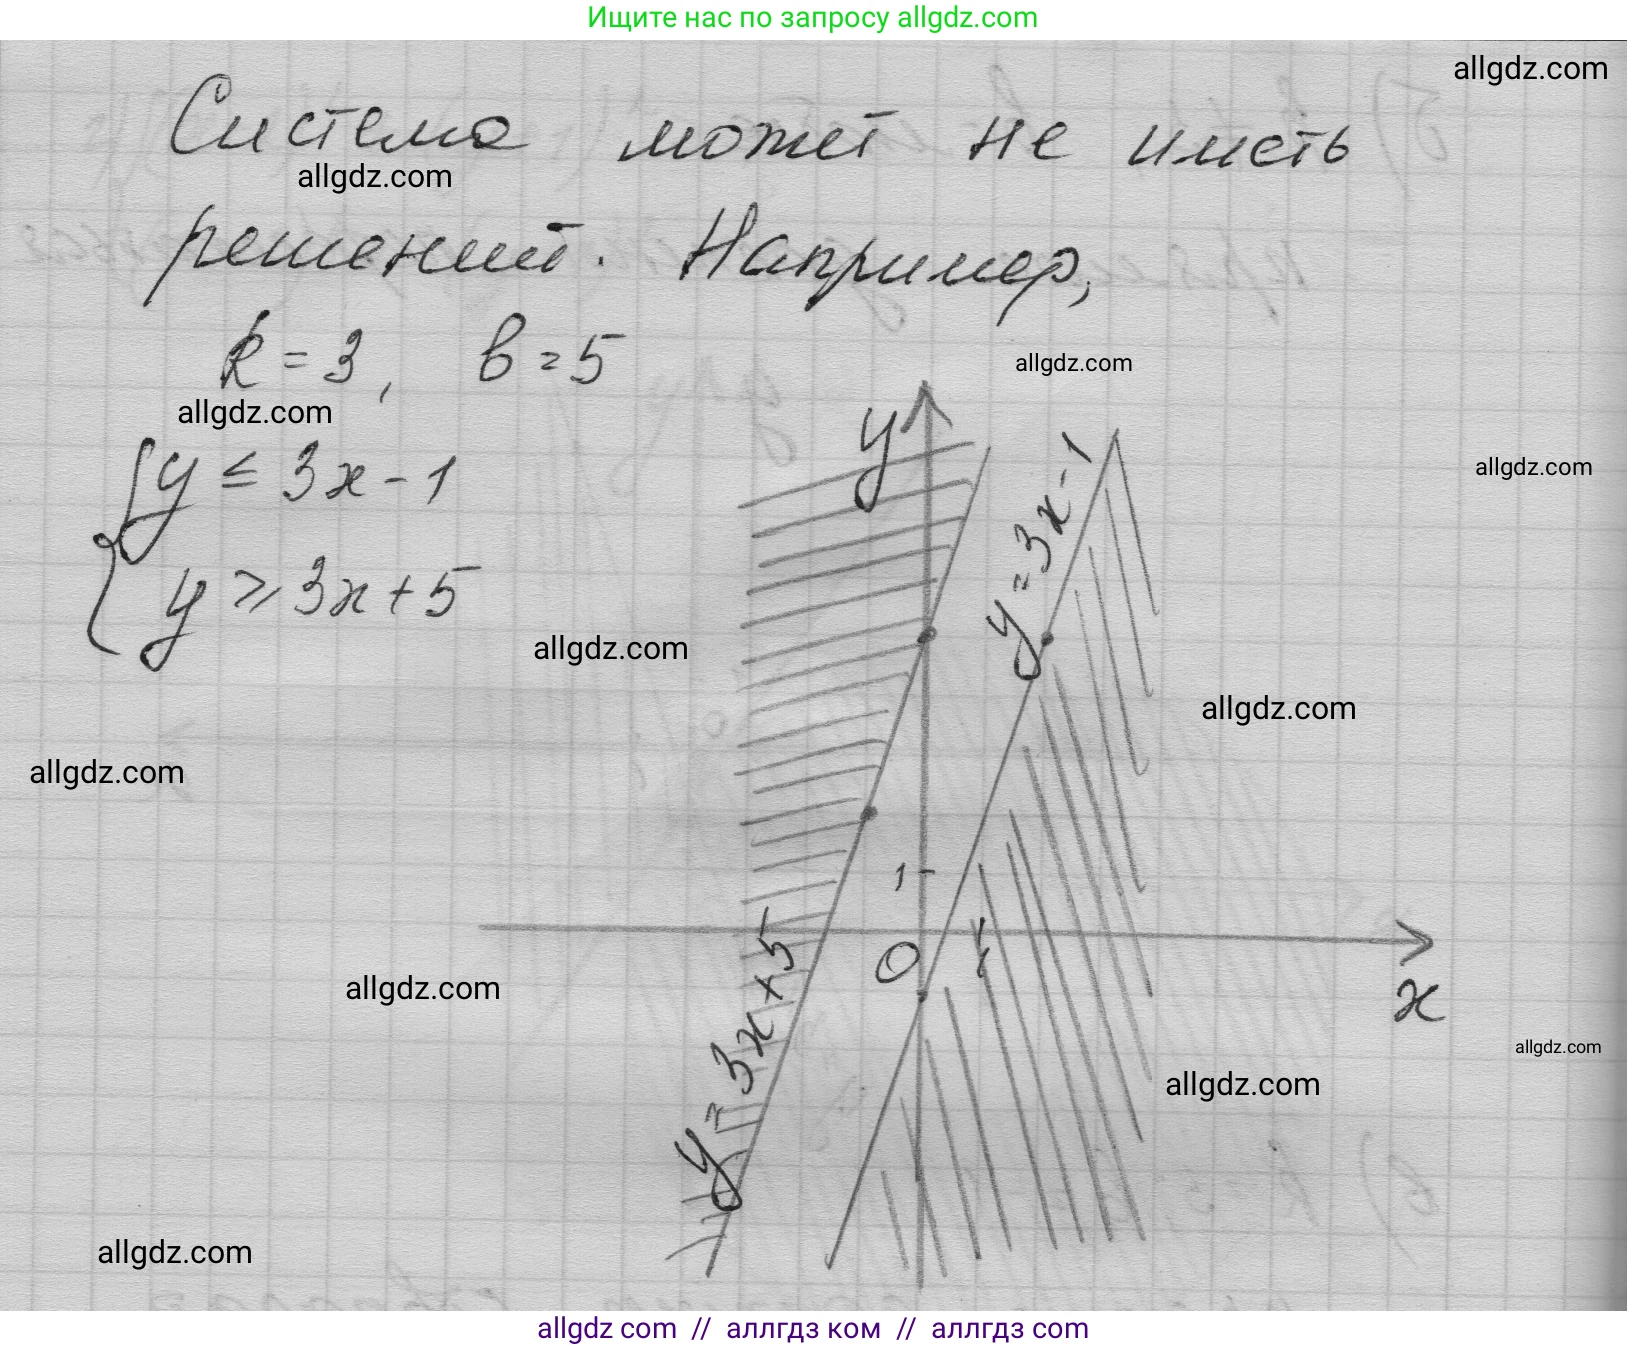 Ищите нас по запросу allgdz.com
allgdz.com
Система может не иметь
allgdz.com
решений. Например,
k = 3, b = 5
allgdz.com
allgdz.com
y ≤ 3x - 1
allgdz.com
y ≥ 3x + 5
y
y = 3x - 1
allgdz.com
allgdz.com
allgdz.com
1
0
1
x
y = 3x + 5
allgdz.com
allgdz.com
allgdz.com
allgdz.com
allgdz.com // аллгдз ком // аллгдз com